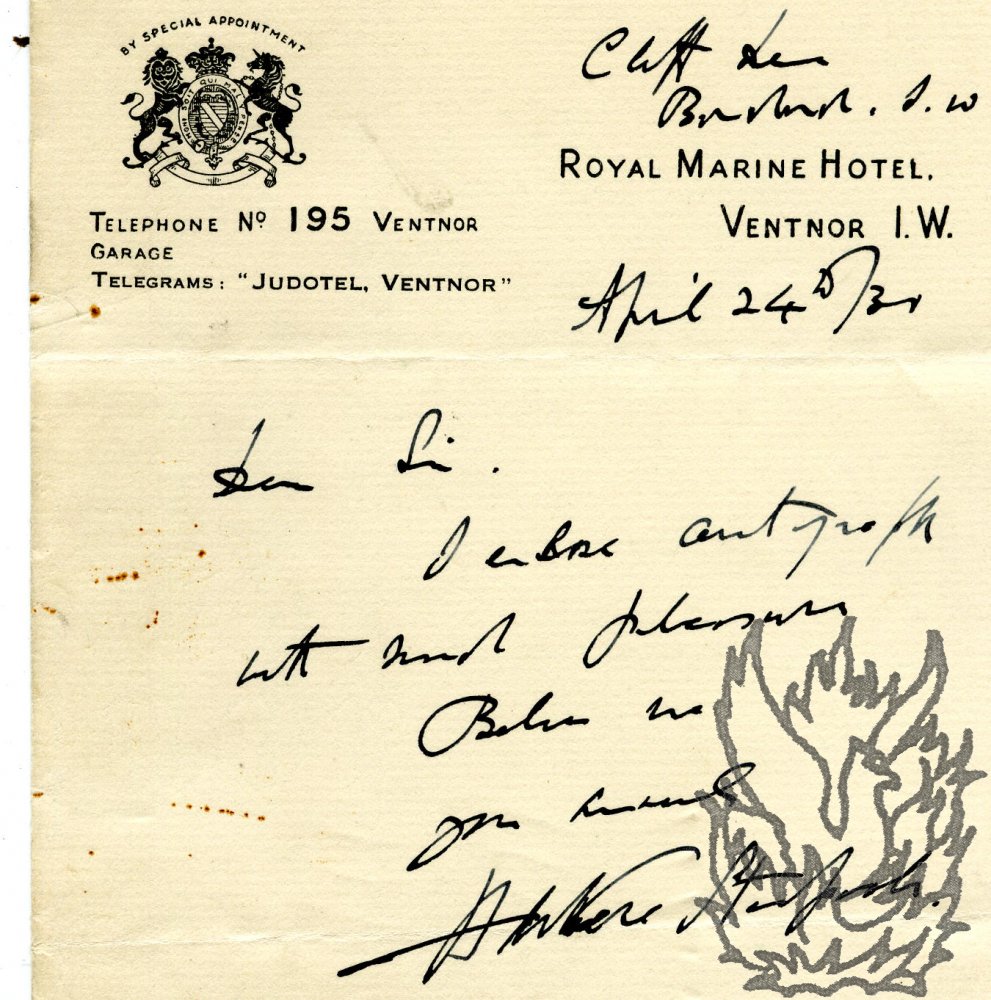 BY SPECIAL APPOINTMENT
HONI SOIT QUI MAL Y PENSE
Cliff Dene
Bonchurch. I. W
ROYAL MARINE HOTEL.
VENTNOR I.W.
TELEPHONE Nº 195 VENTNOR
GARAGE
TELEGRAMS: "JUDOTEL, VENTNOR"
April 24th/30
Dear Sir.
I enclose autograph
with much pleasure
Believe me
yours sincerely
H de Vere Stacpoole.